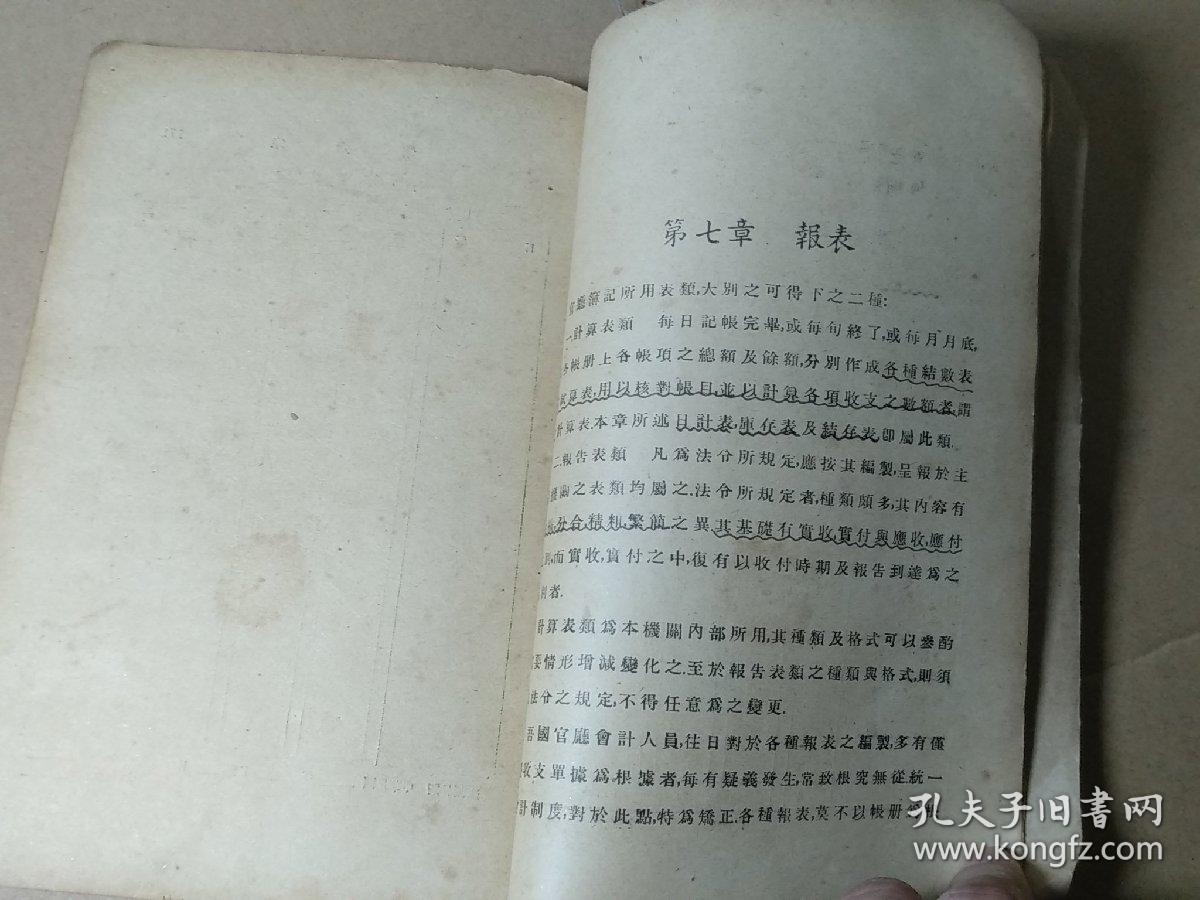 第七章 報表
廳簿記所用表類,大別之可得下之二種:
計算表類 每日記帳完畢,或每旬終了,或每月月底,
帳册上各帳項之總額及餘額,分別作成各種結數表
算表,用以核對帳目,並以計算各項收支之數額者謂
計算表.本章所述日計表,庫存表及結存表卽屬此類.
二.報告表類 凡爲法令所規定,應按其編製,呈報於主
機關之表類均屬之.法令所規定者,種類頗多,其內容有
分合,精粗,繁簡之異.其基礎有實收,實付與應收,應付
別,而實收,實付之中,復有以收付時期及報告到達爲之
者.
計算表類爲本機關內部所用,其種類及格式可以參酌
要情形增減變化之.至於報告表類之種類與格式,則須
法令之規定,不得任意爲之變更.
吾國官廳會計人員,往日對於各種報表之編製,多有僅
收支單據爲根據者,每有疑義發生,常致根究無從.統一
計制度,對於此點,特爲矯正.各種報表,莫不以帳册
孔夫子旧书网
www.kongfz.com